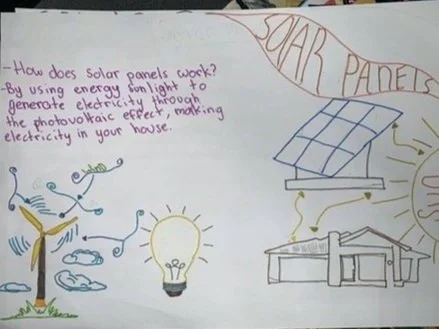 SOLAR PANELS
-How does solar panels work?
-By using energy sunlight to
generate electricity through
the photovoltaic effect, making
electricity in your house.
Wind
SUN